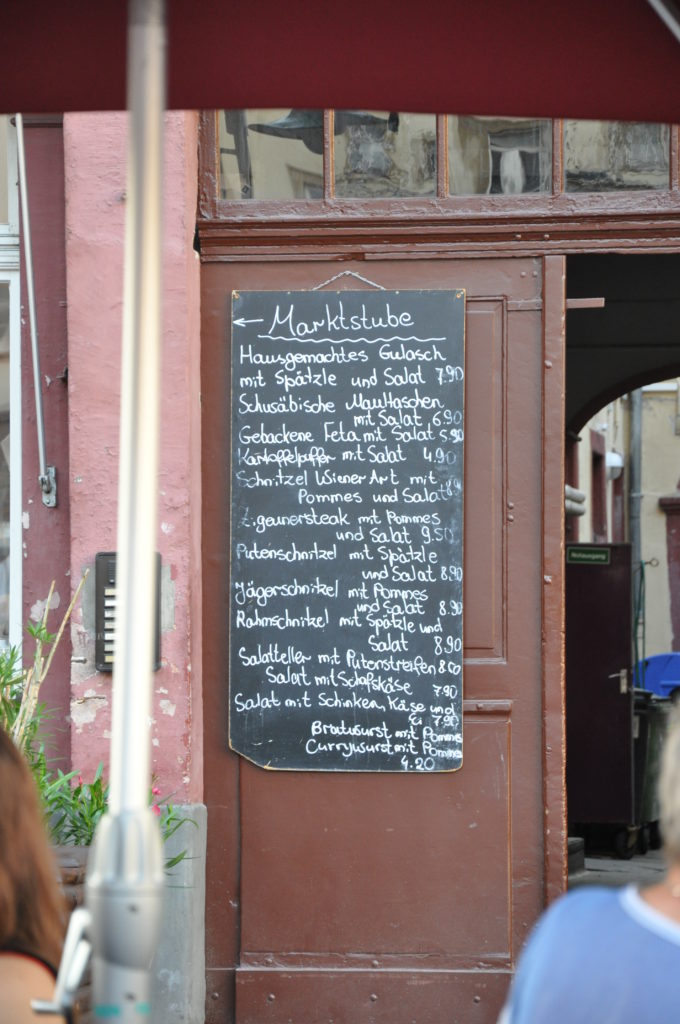 ← Marktstube
Hausgemachtes Gulasch
mit Spätzle und Salat 7.90
Schwäbische Maultaschen
mit Salat 6.90
Gebackene Feta mit Salat 5.90
Kartoffelpuffer mit Salat 4.90
Schnitzel Wiener Art mit
Pommes und Salat
Zigeunersteak mit Pommes
und Salat 9.50
Putenschnitzel mit Spätzle
und Salat 8.90
Jägerschnitzel mit Pommes
und Salat 8.90
Rahmschnitzel mit Spätzle und
Salat 8.90
Salatteller mit Putenstreifen 8.00
Salat mit Schafskäse 7.90
Salat mit Schinken, Käse und
Ei 7.90
Bratwurst mit Pommes
Currywurst mit Pommes
4.20
Notausgang